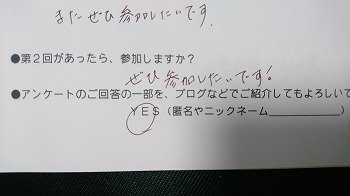 またぜひ参加したいです.
●第2回があったら、参加しますか?
ぜひ参加したいです!
●アンケートのご回答の一部を、ブログなどでご紹介してもよろしいで
YES(匿名やニックネーム____________)